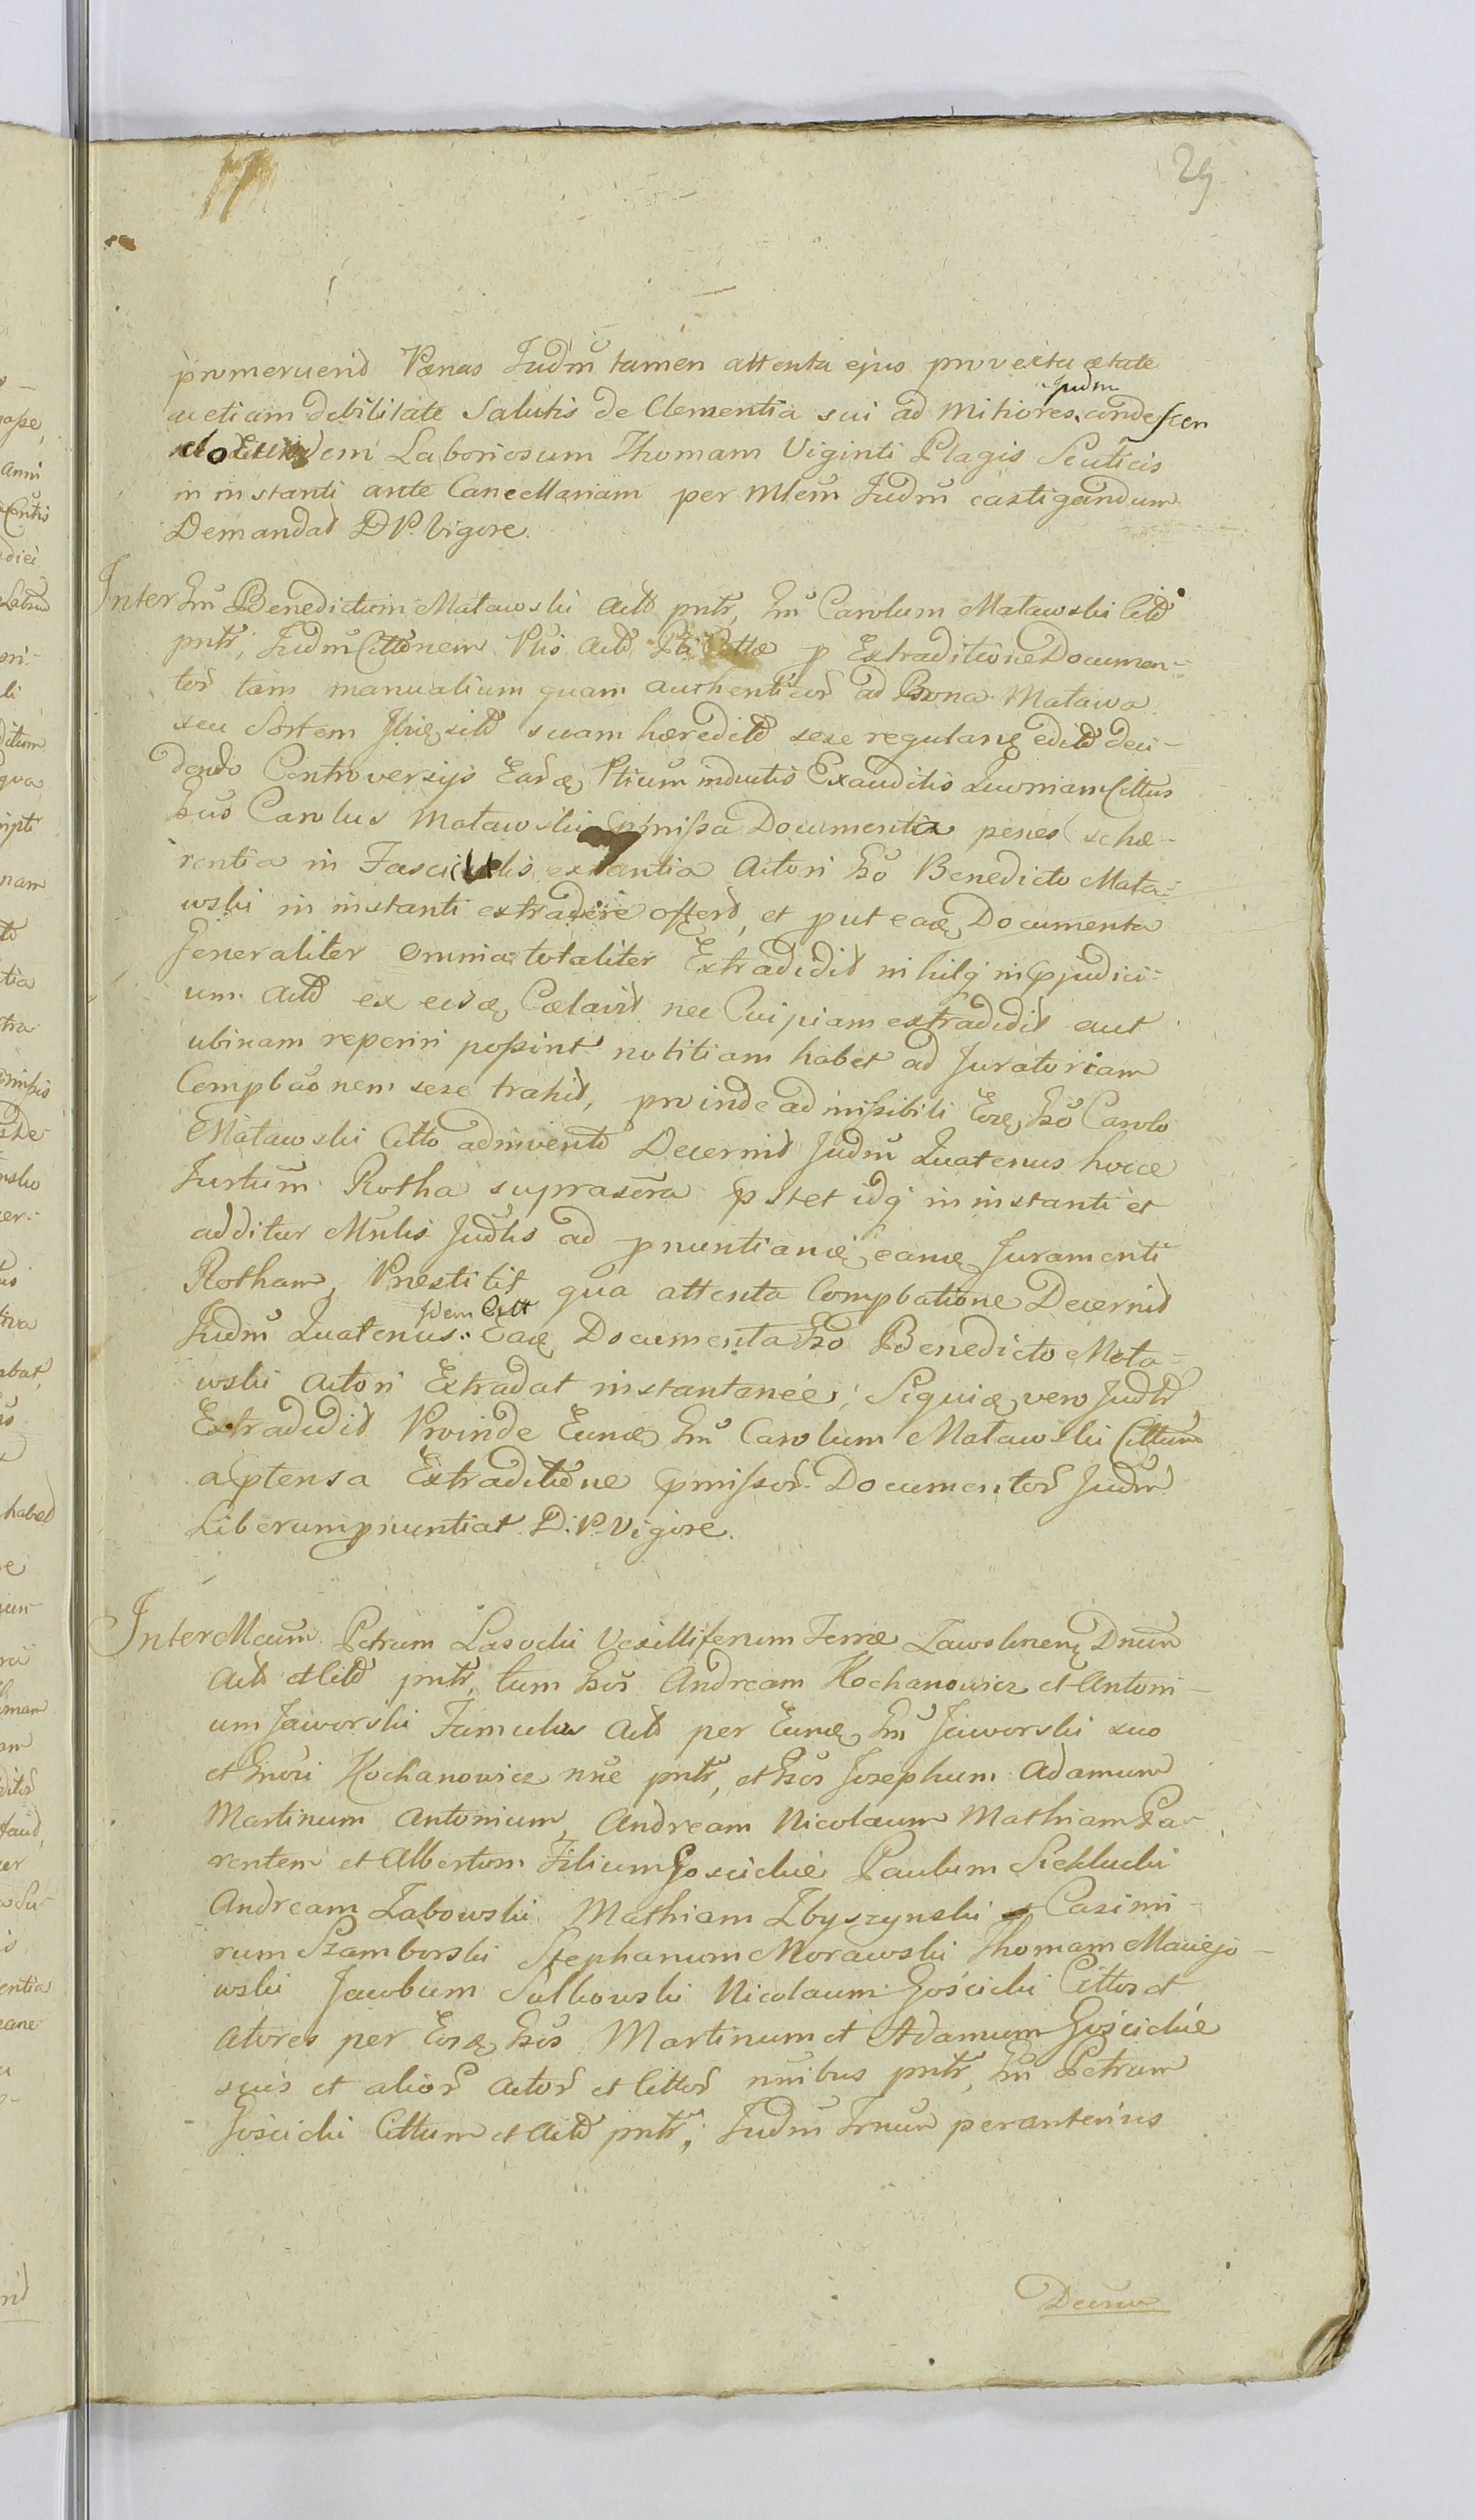 29
promeruerit Pænas Judm̃ tamen attenta ejus provecta ætate
ac etiam debilitate Salutis de Clementia sui ad mitiores Judm condescen
do Eundem Laboriosum Thomam Viginti Plagis Scuticis
in instanti ante Cancellariam per Mlem̃ Judm̃ castigandum
Demandat D P. Vigore.
Inter Gm̃ Benedictum Matawski Act̃ pnt̃r, Gm̃ Carolum Matawski Cit̃t
pnt̃r, Judm̃ Cit̃t̃onem Act̃ p Extraditione Documen-
tor̃ tam manualium quam authenticor̃ ad Bona Matawa
seu Sortem suam hæredit̃ sese regulan edit̃ deci-
dendo Controversijs Ptium inductis Exauditis Quoniam Citt̃us
Gsus Carolus Matawski pmissa Documenta penes se hæ-
rentia in Fasciculis extantia Actori Gso Benedicto Mata-
wski in instanti extradere offert, et put eaq Documenta
Generaliter omnia totaliter Extradidit nihilq in pjudici-
um Act̃ ex eisq Cælavit nec Cuipiam extradidit aut
ubinam reperiri possint notitiam habet ad Juratoriam
Compbaõnem sese trahit, proinde admissibili Eoq Gso Carolo
Matawski Citto adinvento Decernit Judm̃ Quatenus hocce
Jurtum̃ Rotha suprascra pstet idq in instanti et
additur Mñlis Judt̃is ad pnuntiandq eamq Juramenti
Rotham, Præstitit qua attenta Compbatione Decernit
Judm̃ Quatenus Idem Citt Eaq Documenta Gso Benedicto Mata-
wski Actori Extradat instantanée; Siquiq vero Judt̃r
Extradidit Proinde Eumq Gm̃ Carolum Matawski Cittum
a ptensa Extraditione pmissor̃ Documentor̃ Judm̃
Liberum pnuntiat D. P. Vigore.
Inter Mcum̃ Petrum Lasocki Vexilliferum Terræ Zawskrnen Dnum̃
Act̃ et Cit̃t pnt̃r, tum Gsos̃ Andream Kochanowicz et Antoni-
um Jaworski Famulos Act̃ per Eumq Gm̃ Jaworski suo
et Kochanowicz nñe pnt̃r, et Gsos̃ Josephum Adamum
Martinum Antonium, Andream Nicolaum Mathiam Pa-
rentem et Albertum Filium Gościckié Paulum Siekłucki
Andream Łabowski Mathiam Zbyszynski Casimi-
rum Szamborski Stephanum Morawski Thomam Maciejo-
wski Jacobum Sułkowski Nicolaum Gościcki Cittos et
Actores per Eosq Gsos̃ Martinum et Adamum Gościckié
suis et alior̃ Actor̃ et Cittor̃ nñibus pnt̃r, Gm̃ Petrum
Gościcki Cittum et Act̃ pnt̃r, Judm̃ Trnum̃ per anterius